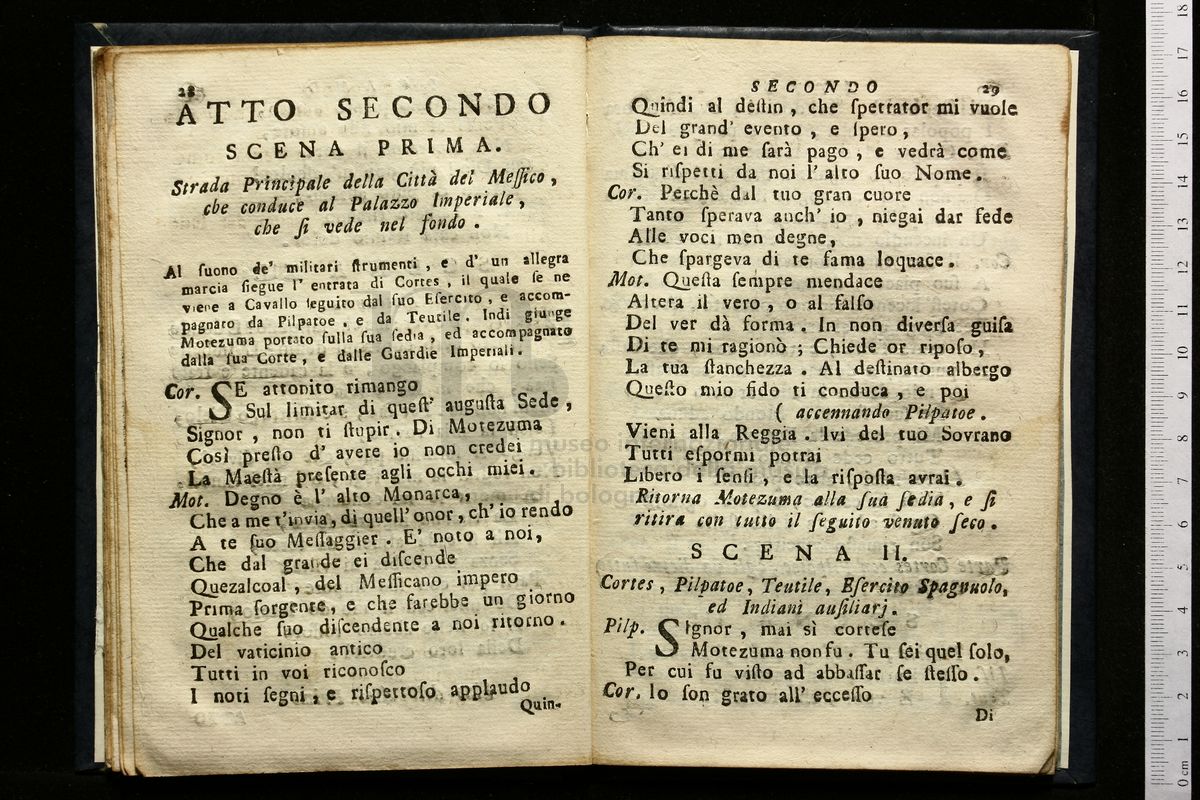 28
ATTO SECONDO
SCENA PRIMA.
Strada Principale della Città del Meſſico,
che conduce al Palazzo Imperiale,
che ſi vede nel fondo.
Al ſuono de' militari ſtrumenti, e d' un allegra
marcia ſiegue l' entrata di Cortes, il quale ſe ne
viene a Cavallo ſeguito dal ſuo Eſercito, e accom-
pagnato da Pilpatoe, e da Teutile. Indi giunge
Motezuma portato ſulla ſua ſedia, ed accompagnato
dalla ſua Corte, e dalle Guardie Imperiali.
Cor. SE attonito rimango
Sul limitar di queſt' auguſta Sede,
Signor, non ti ſtupir. Di Motezuma
Così preſto d' avere io non credei
La Maeſtà preſente agli occhi miei.
Mot. Degno è l' alto Monarca,
Che a me t'invia, di quell' onor, ch' io rendo
A te ſuo Meſſaggier. E' noto a noi,
Che dal grande ei diſcende
Quezalcoal, del Meſſicano impero
Prima ſorgente, e che farebbe un giorno
Qualche ſuo diſcendente a noi ritorno.
Del vaticinio antico
Tutti in voi riconoſco
I noti ſegni, e riſpettoſo applaudo
Quin-
SECONDO 29
Quindi al deſtin, che ſpettator mi vuole
Del grand' evento, e ſpero,
Ch' ei di me ſarà pago, e vedrà come
Si riſpetti da noi l' alto ſuo Nome.
Cor. Perchè dal tuo gran cuore
Tanto ſperava anch' io, niegai dar fede
Alle voci men degne,
Che ſpargeva di te fama loquace.
Mot. Queſta ſempre mendace
Altera il vero, o al falſo
Del ver dà forma. In non diverſa guiſa
Di te mi ragionò; Chiede or ripoſo,
La tua ſtanchezza. Al deſtinato albergo
Queſto mio fido ti conduca, e poi
( accennando Pilpatoe.
Vieni alla Reggia. Ivi del tuo Sovrano
Tutti eſpormi potrai
Libero i ſenſi, e la riſpoſta avrai.
Ritorna Motezuma alla ſua ſedia, e ſi
ritira con tutto il ſeguito venuto ſeco.
SCENA II.
Cortes, Pilpatoe, Teutile, Eſercito Spagnuolo,
ed Indiani auſiliarj.
Pilp. SIgnor, mai sì corteſe
Motezuma non fu. Tu ſei quel ſolo,
Per cui fu viſto ad abbaſſar ſe ſteſſo.
Cor. Io ſon grato all' ecceſſo
Di
museo internazionale
biblioteca della musica
di bologna
0 cm 1 2 3 4 5 6 7 8 9 10 11 12 13 14 15 16 17 18